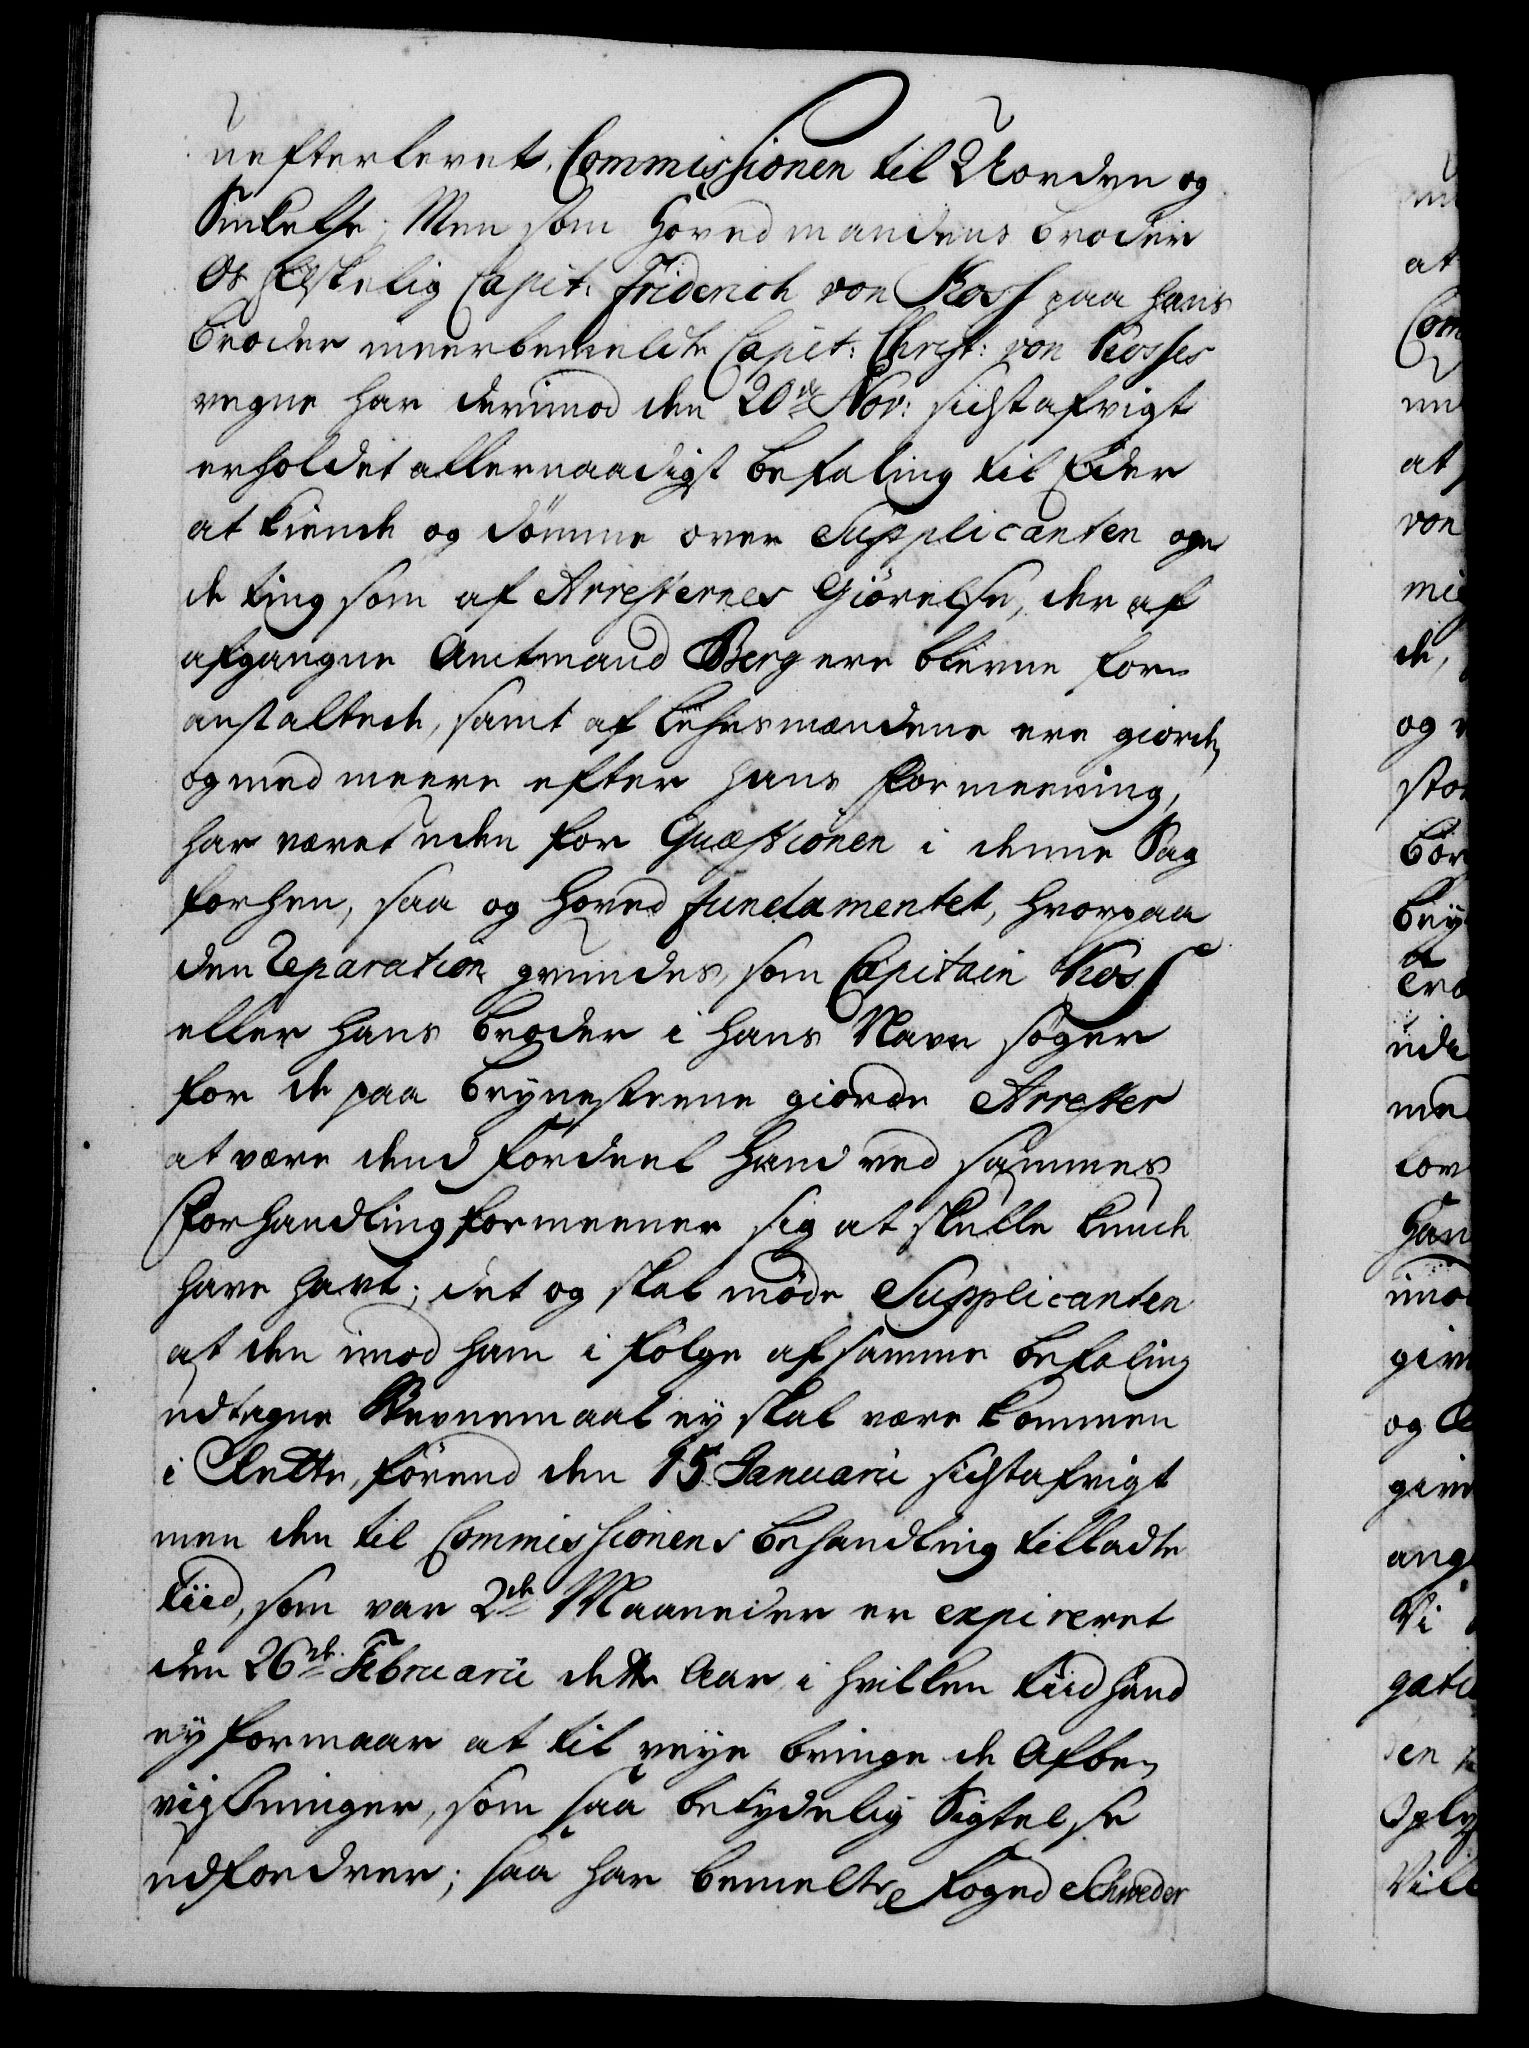 uefterlevet, Commissionen til Uorden og
Sinkelse; Men som Hovedmandens broder
Os Elskelig Capit: Friderich von Koss paa hans
broder meerbemeldte Capit: Christ: von Kosses
vegne har derimod den 20de Nov: sidstafvigt
erholdet allernaadigst befaling til Eder
at kiende og dömme over Supplicanten og
de ting som af Arresternes Giörelse, der af
afgangne Amtmand Berg ere blevne for-
anstaltede, samt af Lehnsmændene ere giorde,
og med meere efter hans formeening,
har været uden for Quæstionen i denne Sag
forhen, saa og Hoved fundamentet, hvorpaa
den Reparation grundes, som Capitain Koss
eller hans broder i hans Navn søger
for de paa brynesteene giorde Arrester
at være dend Fordeel hand ved sammes
Forhandling formeener sig at skulle kunde
have havt; det og skal møde Supplicanten
at den imod ham i følge af samme befaling
udtagne Stevnemaal ey skal være kommen
i Rette, förend den 15 Januarii sidstafvigt
men den til Commissionens behandling tilladte
tiid, som var 2de Maaneder er expireret
den 26de Februarii dette Aar, i hvilken tiid hand
ey formaar at til veye bringe de Afbe-
viisninger, som saa betydelig Sigtelse
udfordrer; saa har bemelte Foged Schweder